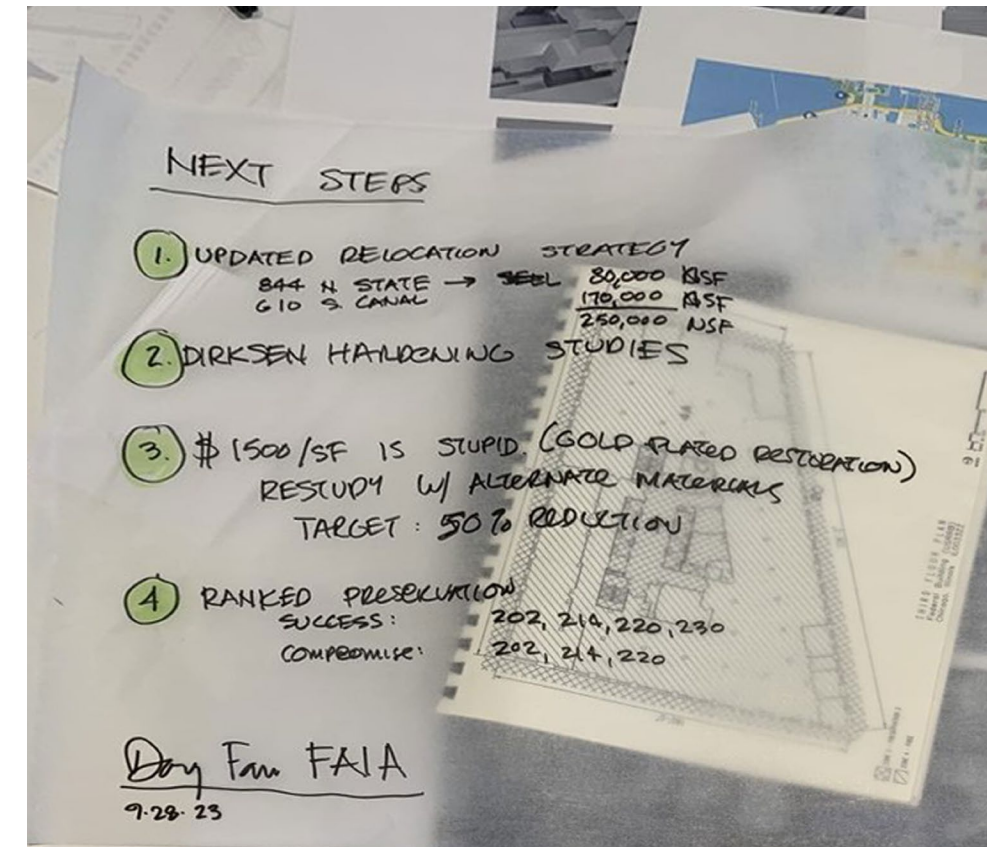 NEXT STEPS
1. UPDATED RELOCATION STRATEGY
844 N STATE → SELL 80,000 NSF
610 S. CANAL 170,000 NSF
250,000 NSF
2. DIRKSEN HARDENING STUDIES
3. $1500/SF IS STUPID. (GOLD PLATED RESTORATION)
RESTUDY W/ ALTERNATE MATERIALS
TARGET: 50% REDUCTION
4 RANKED PRESERVATION
SUCCESS: 202, 214, 220, 230
COMPROMISE: 202, 214, 220
FAIA
9.28.23
THIRD FLOOR PLAN
Federal Building
Chicago, Illinois